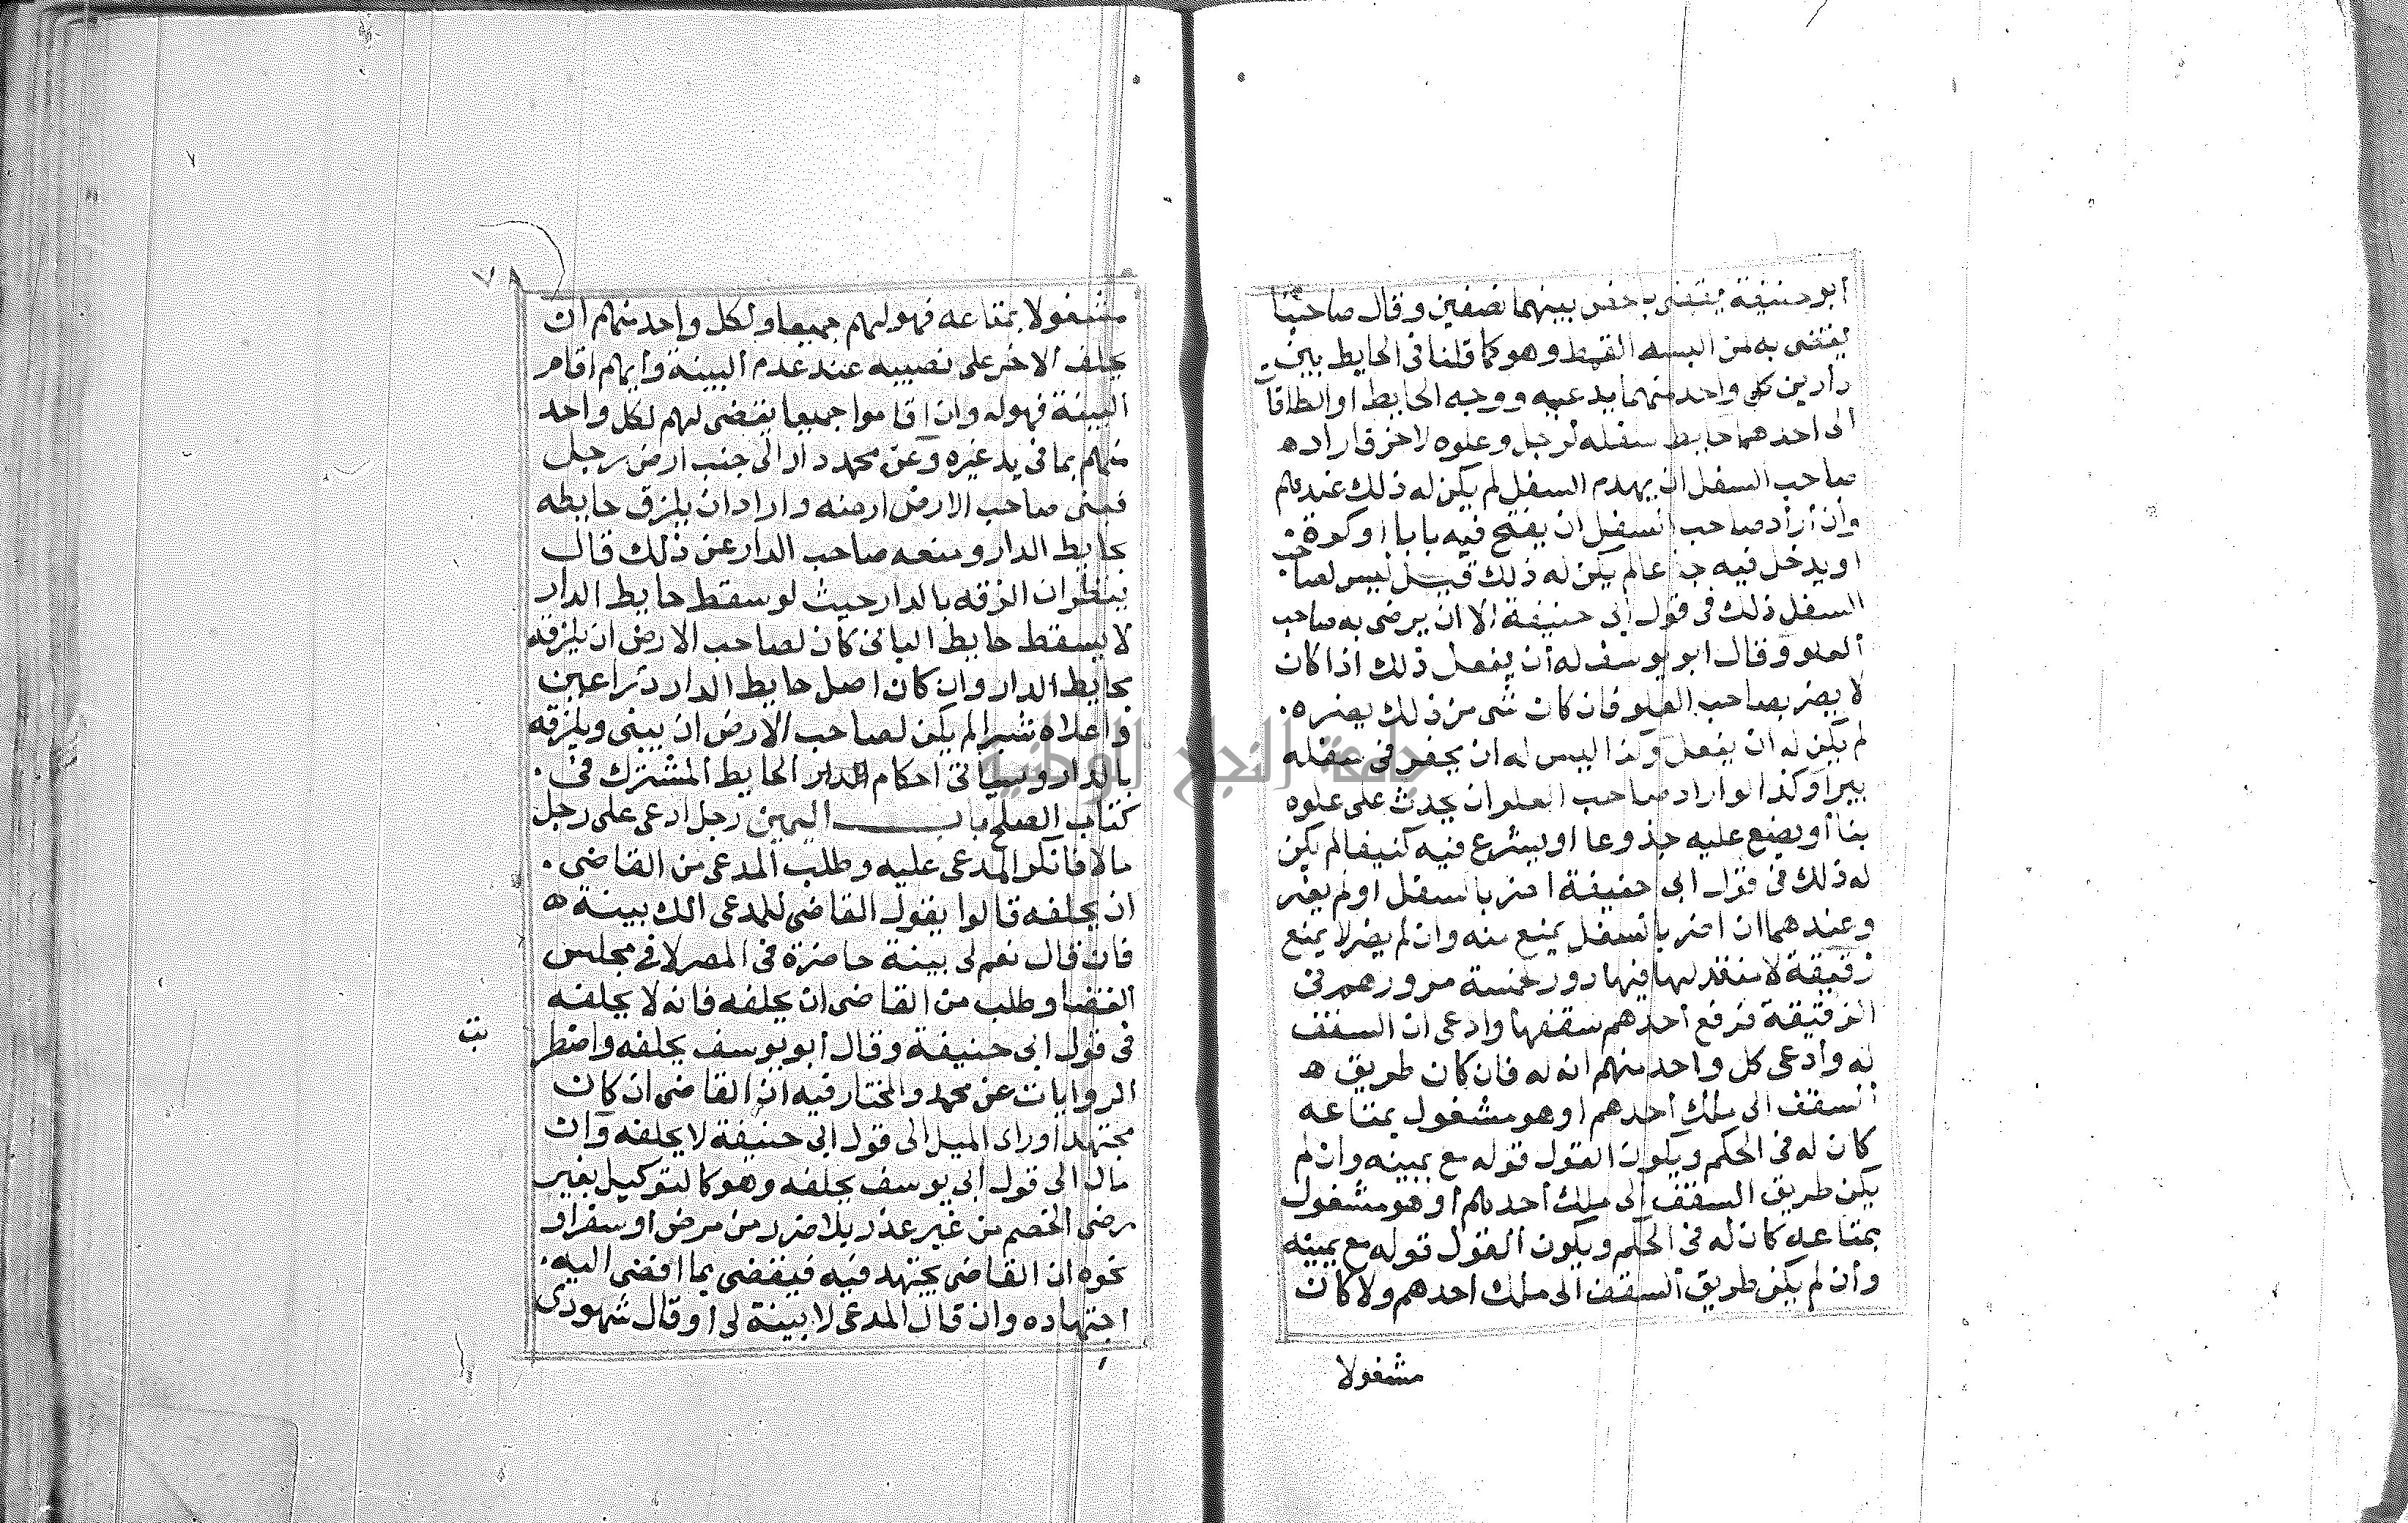 أبو حنيفة يقضى بالخص بينهما نصفين وقال صاحبنا
يقضى به من اليه القمط وهو كما قلنا فى الحايط بين
دارين كل واحد منهما يدعيه ووجه الحايط او الطاقات
الى احدهما حايط سفله لرجل وعلوه لاخر فاراد
صاحب السفل ان يهدم السفل لم يكن له ذلك عندهم
وان أراد صاحب السفل ان يفتح فيه بابا أو كوة
او يدخل فيه جذعا لم يكن له ذلك قبل ليس لصاحب
السفل ذلك فى قول ابى حنيفة الا ان يرضى به صاحب
العلو وقال ابو يوسف له أن يفعل ذلك اذا كان
لا يضر بصاحب العلو فان كان شى من ذلك يضره
لم يكن له ان يفعل وكذا ليس له ان يحفر فى سفله
بيرا وكذا لو اراد صاحب العلو ان يحدث على علوه
بنا أو يضع عليه جذوعا او يشرع فيه كنيفا لم يكن
له ذلك فى قول ابى حنيفة اضر بالسفل او لم يضر
وعندهما ان اضر بالسفل يمنع منه وان لم يضر لا يمنع
زقيقة لا منفذ لها فيها دور خمسة مرورهم فى
الزقيقة فرفع أحدهم سقفها وادعى ان السقف
له وأدعى كل واحد منهم انه له فان كان طريق
السقف الى ملك أحدهم او هو مشغول بمتاعه
كان له فى الحكم ويكون القول قوله مع يمينه وان لم
يكن طريق السقف الى ملك أحدهم أو هو مشغول
بمتاعه كان له فى الحكم ويكون القول قوله مع يمينه
وأن لم يكن طريق السقف الى ملك احدهم ولا كان
مشغولا
٧٨
مشغولا بمتاعه فهو لهم جميعا ولكل واحد منهم ان
يحلف الاخر على نصيبه عند عدم البينة وأيهم اقام
البينة فهو له وان اقاموا جميعا يقضى لهم لكل واحد
منهم بما فى يد غيره وعن محمد دار الى جنب ارض رجل
فبنى صاحب الارض ارضه واراد ان يلزق حايطه
بحايط الدار ومنعه صاحب الدار عن ذلك قال
ينظر ان الزقه بالدار حيث لو سقط حايط الدار
لا يسقط حايط البانى كان لصاحب الارض ان يلزقه
بحايط الدار وان كان اصل حايط الدار ذراعين
واعلاه شبرا لم يكن لصاحب الارض ان يبنى ويلزقه
بالدار وسياتى احكام الحايط المشترك فى
كتاب الصلح باب اليمين رجل ادعى على رجل
مالا فانكر المدعى عليه وطلب المدعى من القاضى
ان يحلفه قالوا يقول القاضى للمدعى الك بينة
فان قال نعم لى بينة حاضرة فى المصر لا فى مجلس
القضا وطلب من القاضى ان يحلفه فانه لا يحلفه
فى قول ابى حنيفة وقال أبو يوسف يحلفه واضطر
الروايات عن محمد والمختار فيه ان القاضى ان كان
مجتهدا وراى الميل الى قول ابى حنيفة لا يحلفه وان
مال الى قول ابى يوسف يحلفه وهو كالتوكيل بغير
رضى الخصم من غير عذر بلا ضرر من مرض او سفر او
نحوه ان القاضى يجتهد فيه فيقضى بما افضى اليه
اجتهاده وان قال المدعى لا بينة لى أو قال شهودى
بت